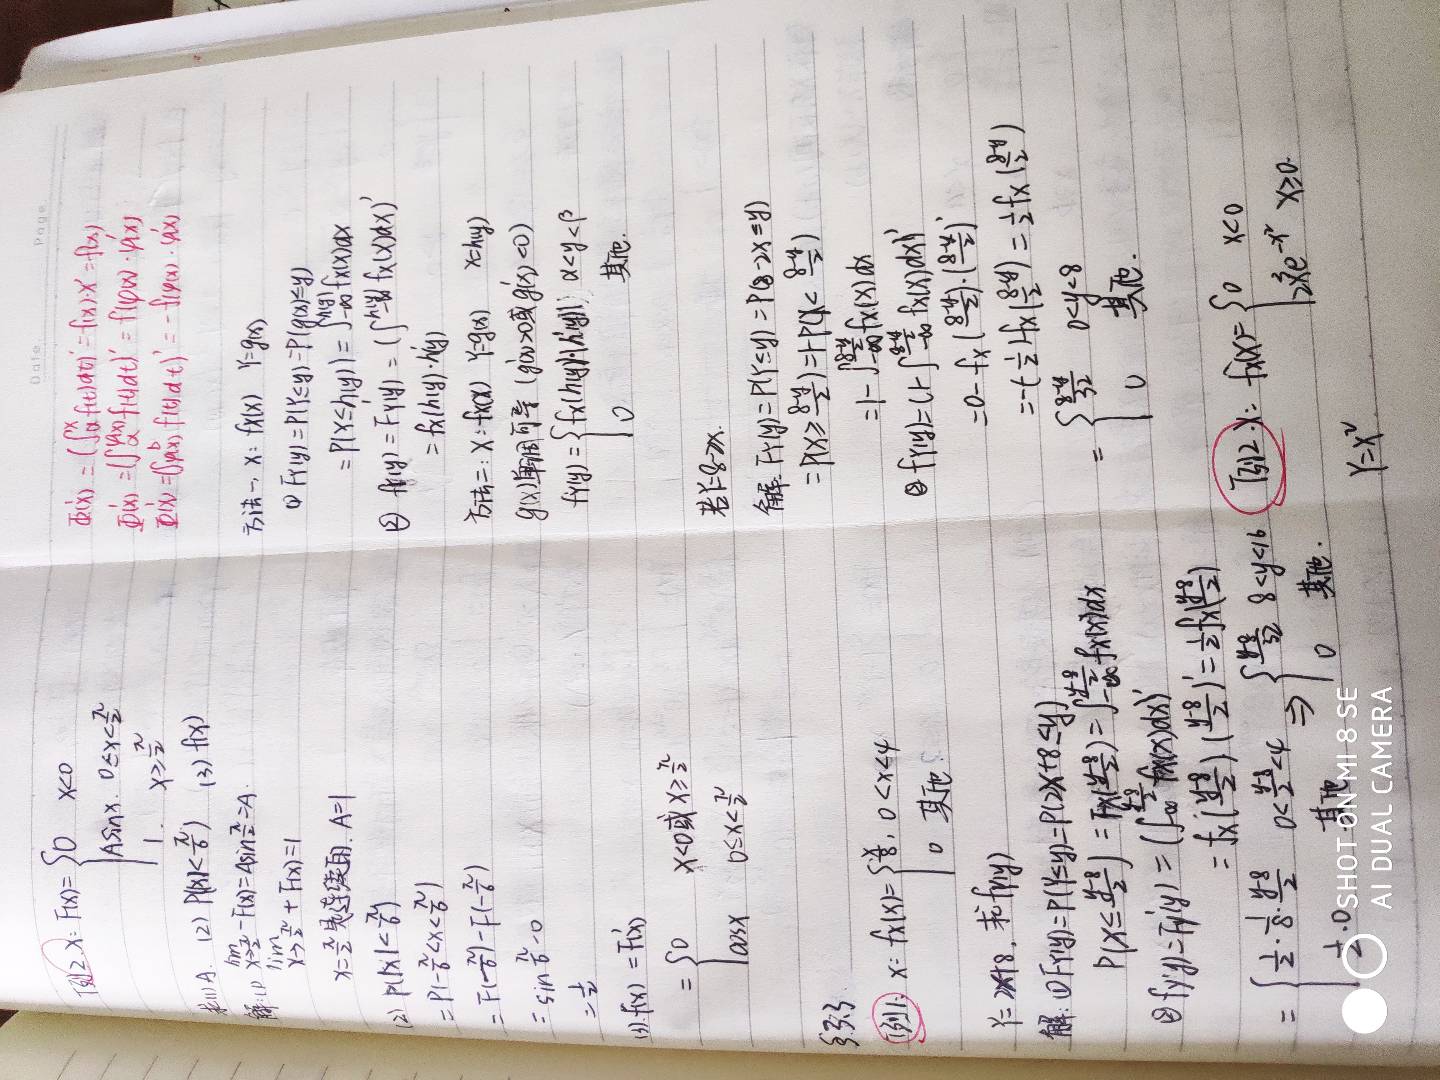 例2. X: F(x)= { 0 x<0
Asinx. 0≤x<π/2
1. x≥π/2
求(1) A. (2) P(|X|<π/6) (3) f(x)
解:(1) lim x→π/2- F(x)=Asinπ/2=A.
lim x→π/2+ F(x)=1
x=π/2是连续的. A=1
(2) P(|x|<π/6)
=P(-π/6<x<π/6)
=F(-π/6)-F(-π/6)
=sinπ/6-0
=1/2
(3).f(x)=F'(x)
= { 0 x<0或x≥π/2
cosx 0≤x<π/2
§3.3
例1: X: fx(x)= { x/8, 0<x<4
0 其他.
Y=2x+8, 求fY(y)
解:①FY(y)=P(Y≤y)=P(2X+8≤y)
P(X≤(y-8)/2)=Fx((y-8)/2)=∫-∞^((y-8)/2) fx(x)dx
②fY(y)=FY'(y)=(∫-∞^((y-8)/2) fx(x)dx)'
=fx((y-8)/2)((y-8)/2)'=1/2fx((y-8)/2)
= { 1/2·1/8·(y-8)/2 0<(y-8)/2<4 ⇒ { (y-8)/32 8<y<16
1/2·0 其他 0 其他.
SHOT ON MI 8 SE
AI DUAL CAMERA
Date. Page.
Φ'(x)=(∫α^x f(t)dt)'=f(x)·x'=f(x)
Φ'(x)=(∫α^φ(x) f(t)dt)'=f(φ(x)·φ'(x)
Φ'(x)=(∫φ(x)^b f(t)dt)'=-f(φ(x)·φ'(x)
方法一, X: fx(x) Y=g(x)
① FY(y)=P(Y≤y)=P(g(x)≤y)
=P(X≤h(y))=∫-∞^h(y) fx(x)dx
② fY(y)=FY'(y)=(∫-∞^h(y) fx(x)dx)'
=fx(h(y)·h'(y)
方法二: X: fx(x) Y=g(x) X=h(y)
g(x)单调可导 (g'(x)>0或g'(x)<0)
fY(y)= { fx(h(y)·|h'(y)| α<y<β
0 其他.
若Y=8-2x.
解: FY(y)=P(Y≤y)=P(8-2X≤y)
=P(X≥(8-y)/2)=1-P(X<(8-y)/2)
=1-∫-∞^((8-y)/2) fx(x)dx
② fY(y)=(1-∫-∞^((8-y)/2) fx(x)dx)'
=0-fx((8-y)/2)·((8-y)/2)'
=-(-1/2)fx((8-y)/2)=1/2fx((8-y)/2)
= { (8-y)/32 0<y<8
0 其他.
例2. X: fx(x)= { 0 x<0
2x³e^-x² x≥0.
Y=x²